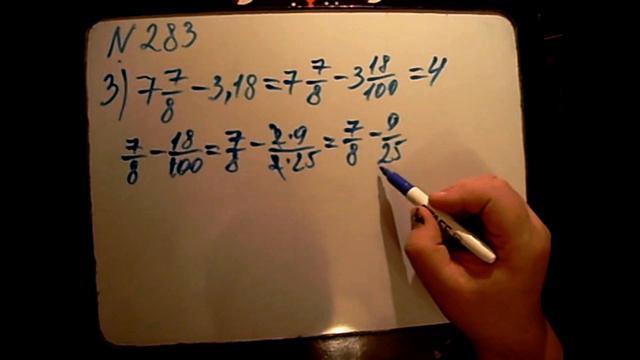 N 283
3) 7 7/8 - 3,18 = 7 7/8 - 3 18/100 = 4
7/8 - 18/100 = 7/8 - 2·9/2·25 = 7/8 - 9/25